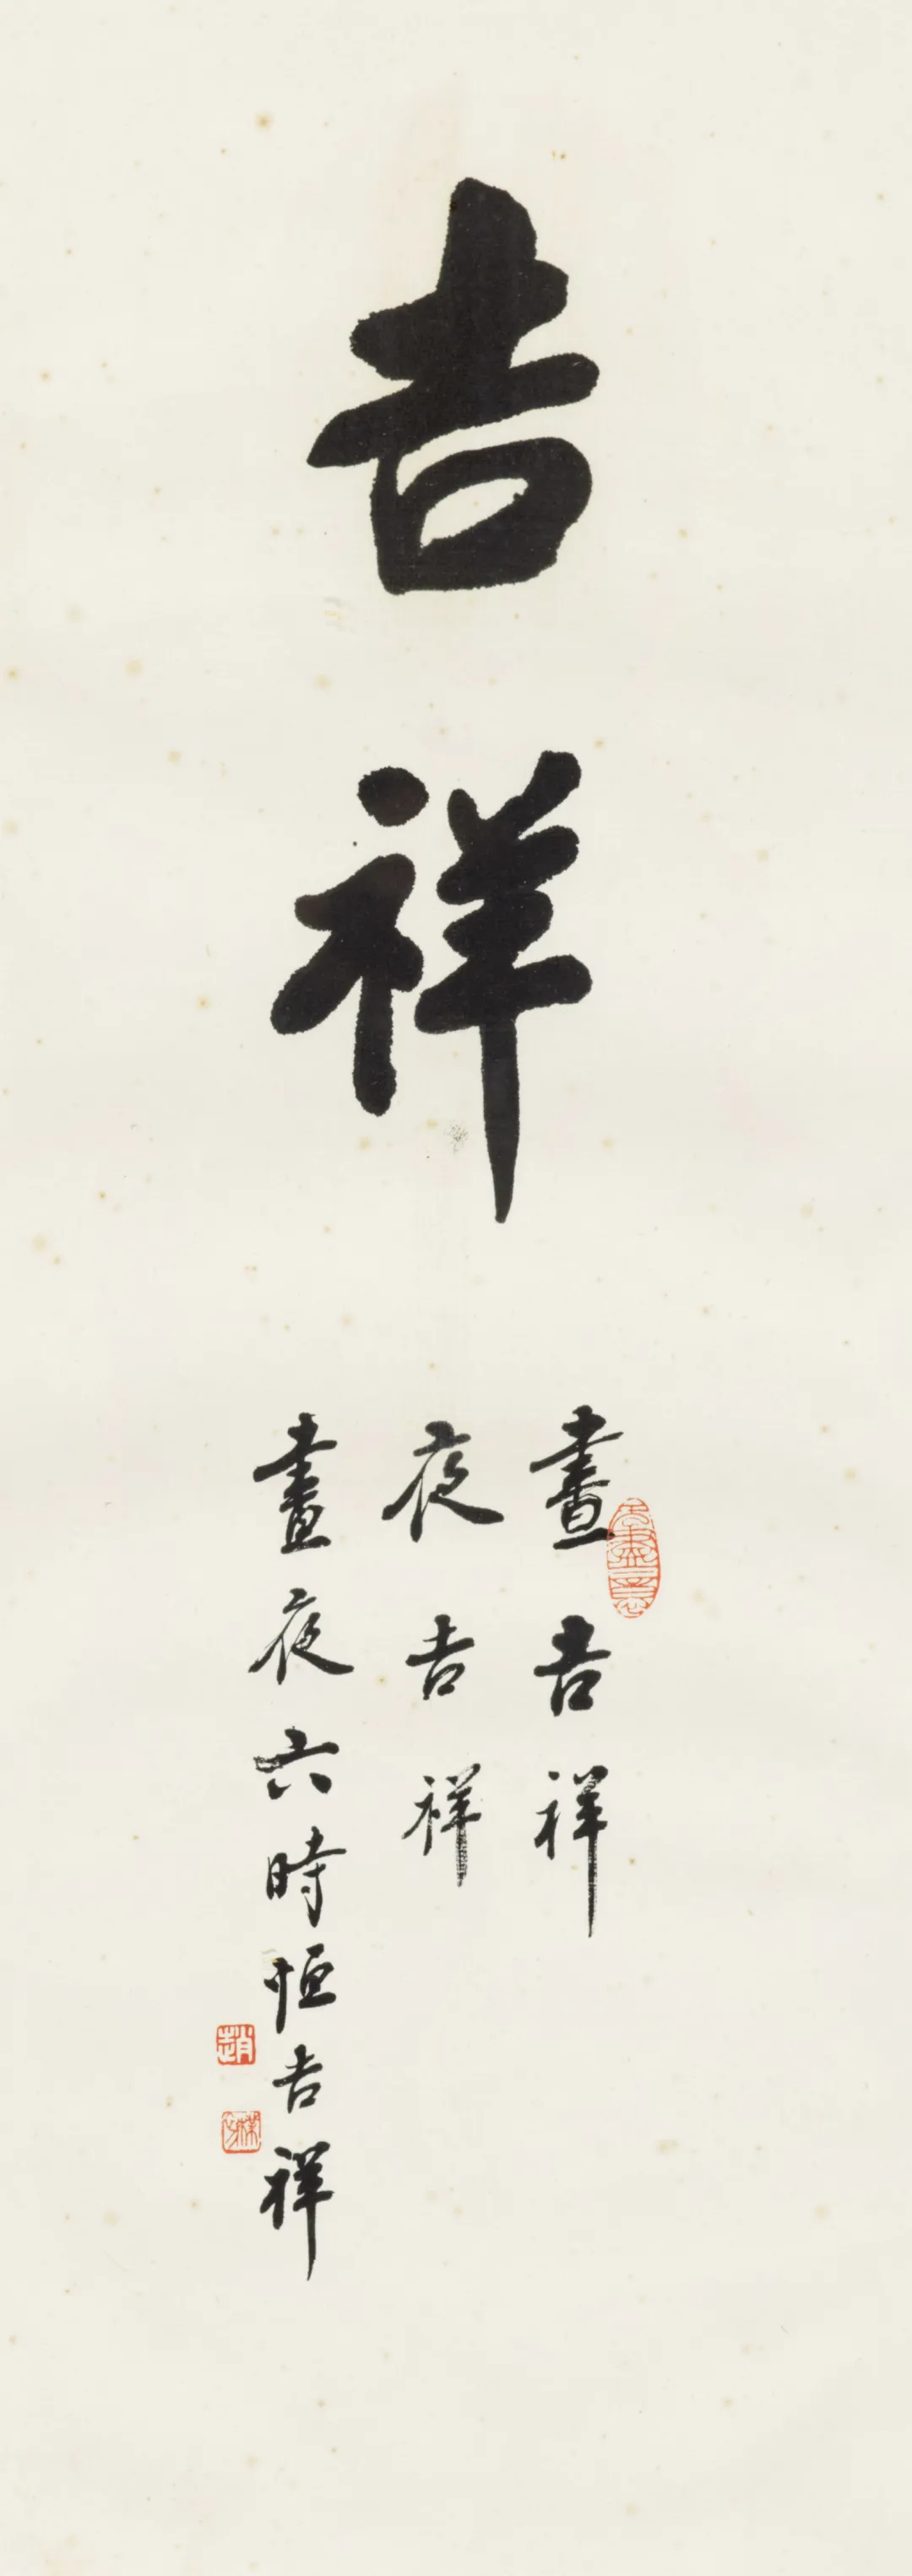 吉祥
晝吉祥
夜吉祥
晝夜六時恒吉祥
趙